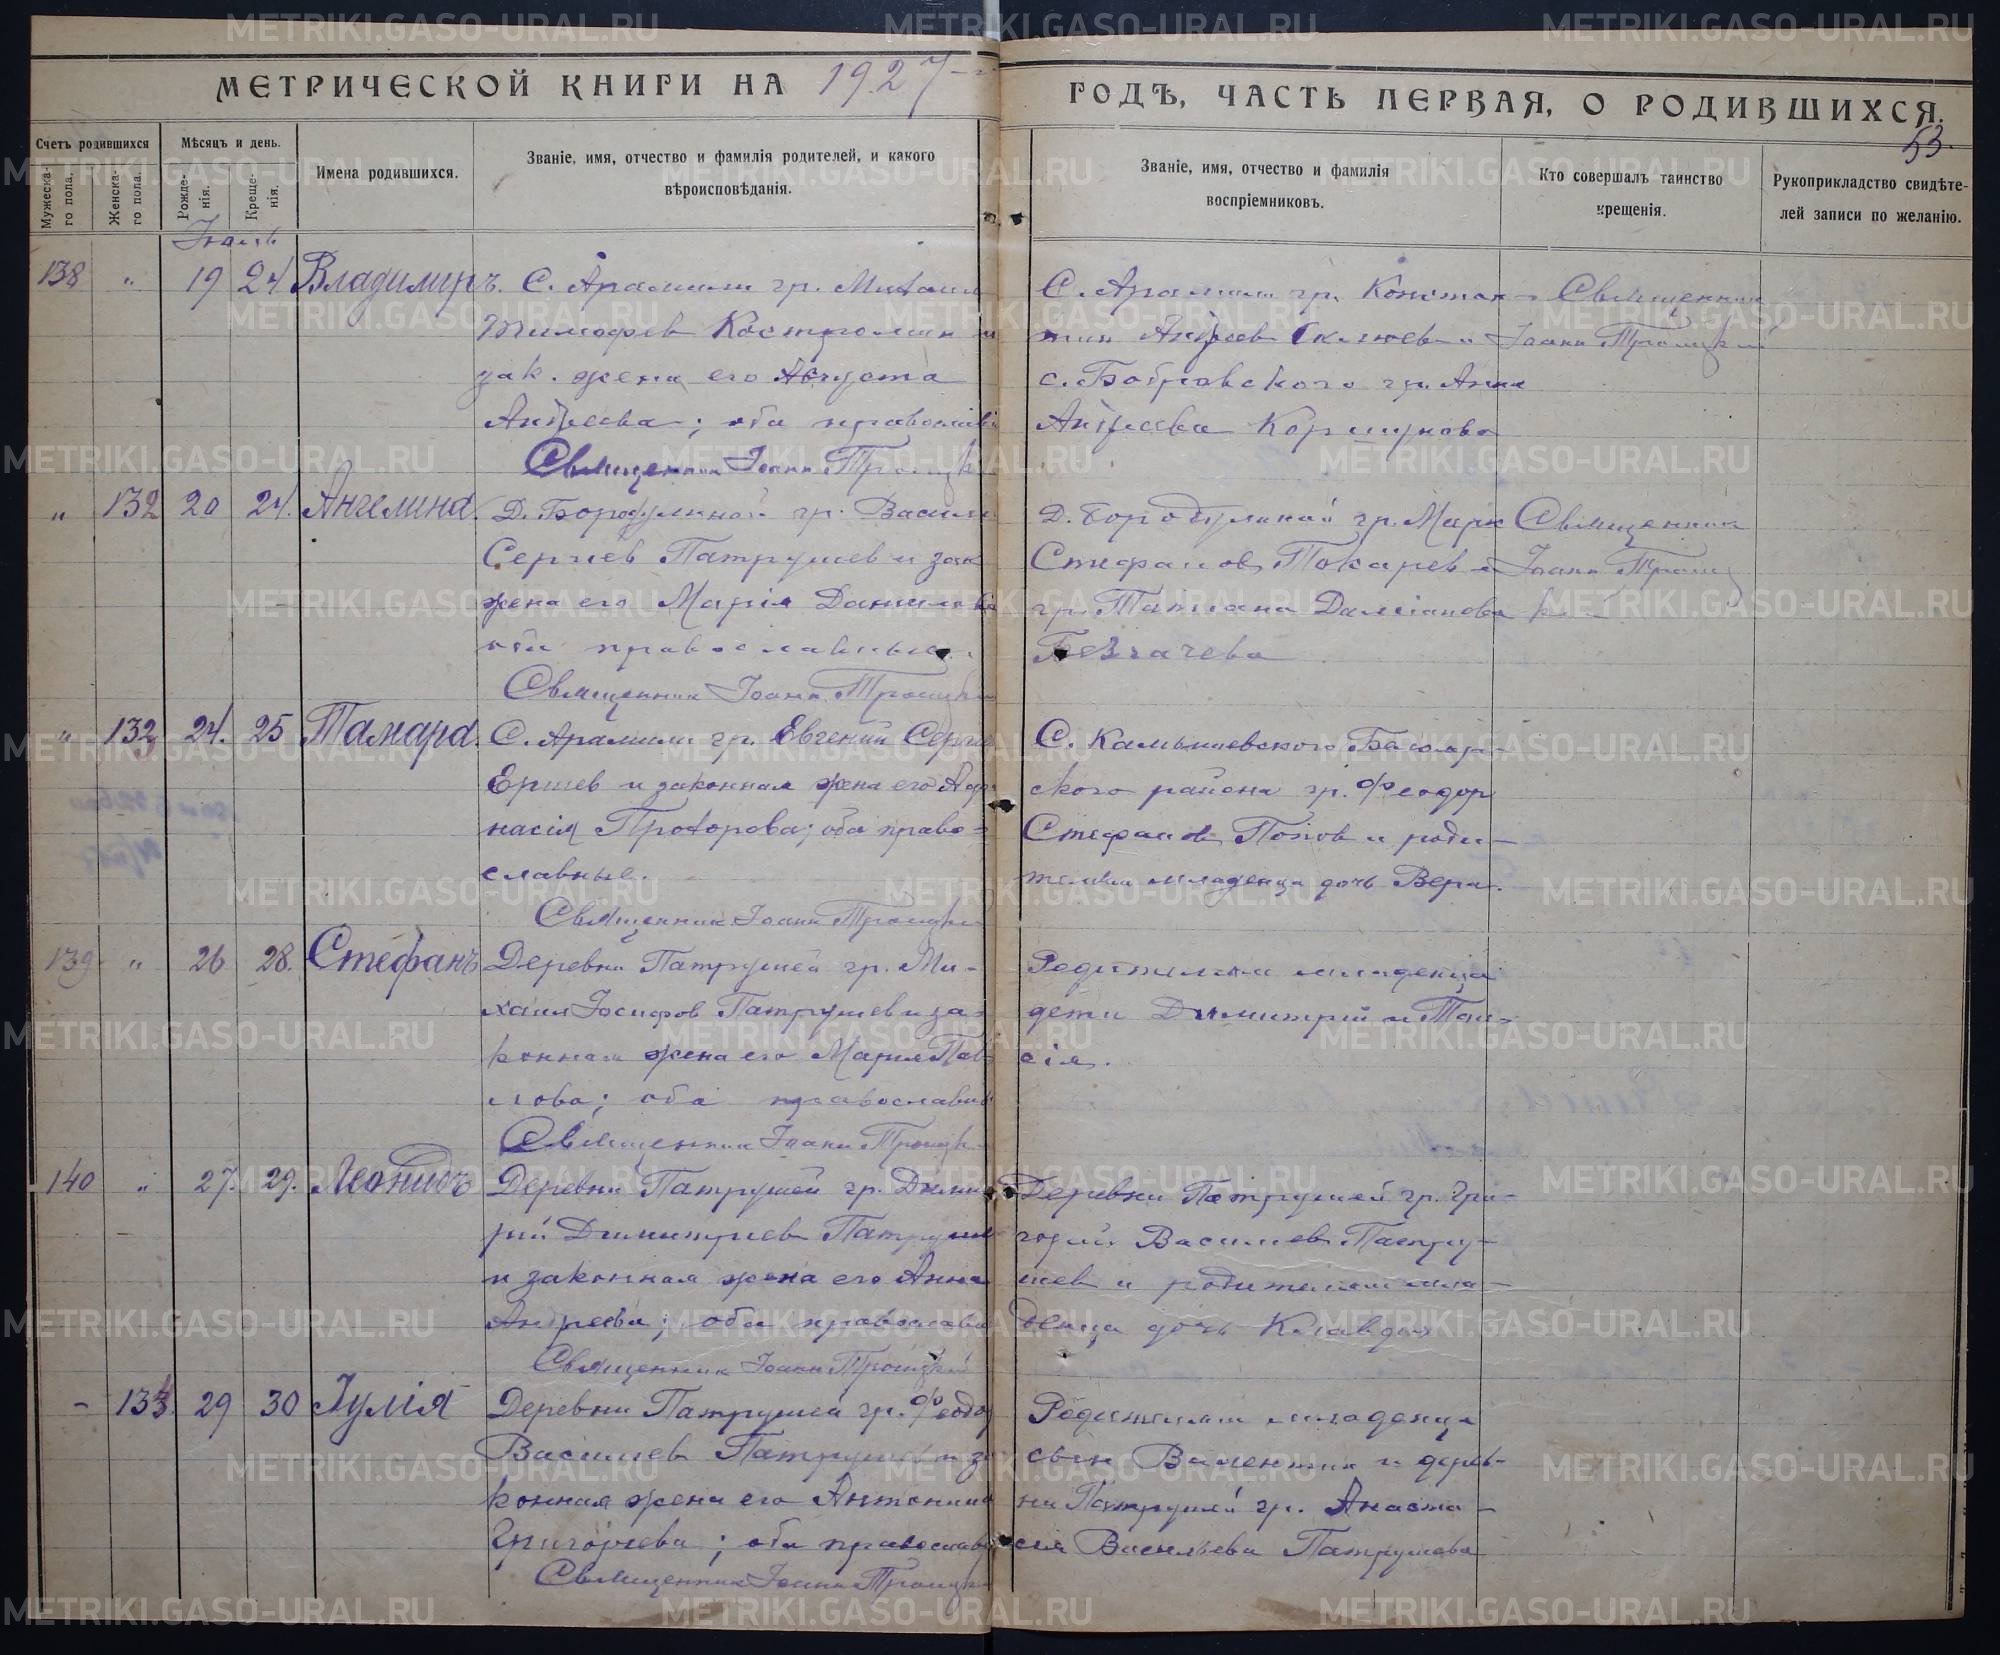 МЕТРИЧЕСКОЙ КНИГИ НА 1927
ГОДѢ, ЧАСТЬ ПЕРВАЯ, О РОДИВШИХСЯ.
53.
Счетъ родившихся
Мѣсяцъ и день.
Имена родившихся.
Званіе, имя, отчество и фамилія родителей, и какого
вѣроисповѣданія.
Званіе, имя, отчество и фамилія
воспріемниковъ.
Кто совершалъ таинство
крещенія.
Рукоприкладство свидѣте-
лей записи по желанію.
Мужеска-
го пола.
Женска-
го пола.
Рожде-
нія.
Креще-
нія.
138 " 19 24 Владимиръ. С. Арамили гр. Михаил
Тимофев Костромин и
зак. жена его Августа
Андреева; оба православ
Священник Іоанн Троицк
С. Арамили гр. Констан-
тин Андреев и
с. Бобровского гр. Анна
Андреева Коршунова
Священник
Іоанн Троицкий
" 132 20 24. Ангелина. Д. Бородулиной гр. Васили
Сергиев Патрушев и зак
жена его Марія Данилова
оба православные.
Священник Іоанн Троицки
Д. Бородулиной гр. Марк
Стефанов Токарев и
гр. Татиана Дамианова
Священник
Іоанн Троиц
кий
" 132 24. 25 Тамара. С. Арамили гр. Евгений Серги
Ершев и законная жена его Афа
насія Прохорова; оба право-
славные.
Священник Іоанн Троицки
С. Камышевского Белояр-
ского района гр. Феодор
Стефанов Попов и роди-
телей младенца дочь Вера.
139 " 26 28. Стефанъ Деревни Патрушей гр. Ми-
хаил Іосифов Патрушев и за-
конная жена его Мария Пав
лова; оба православные
Священник Іоанн Троицк
Родителей младенца
дети Димитрий и Таи-
сія.
140 " 27. 29. Леонидъ Деревни Патрушей гр. Димит
рий Димитриев Патрушев
и законная жена его Анна
Андреева; оба православн
Священник Іоанн Троицкий
Деревни Патрушей гр. Гри-
горий Василиев Патру-
шев и родителей мла-
денца дочь Клавдия
- 133. 29 30 Іулія Деревни Патрушей гр. Феодор
Василиев Патрушев и за
конная жена его Антонина
Григориева; оба православ
Священник Іоанн Троицк
Родителей младенца
сын Валентин и дерев-
ни Патрушей гр. Анаста-
сия Васильева Патрушева